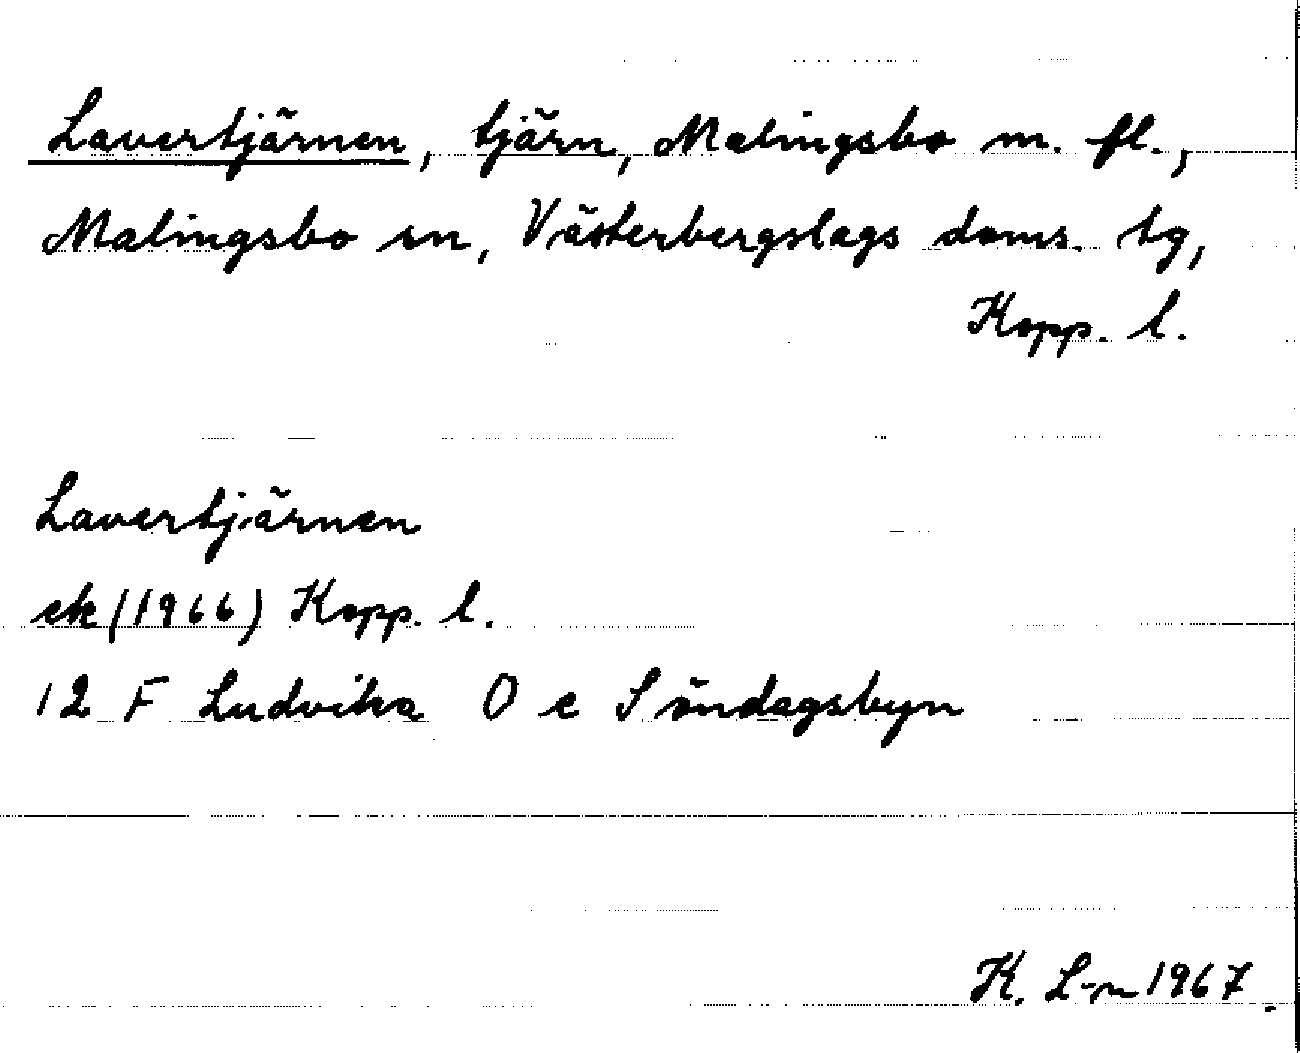 Lavertjärnen, tjärn, Malingsbo m. fl.,
Malingsbo sn, Västerbergslags doms. tg,
Kopp. l.
Lavertjärnen
ek (1966) Kopp. l.
12 F Ludvika O e Söndagsbyn
K. L-n 1967.